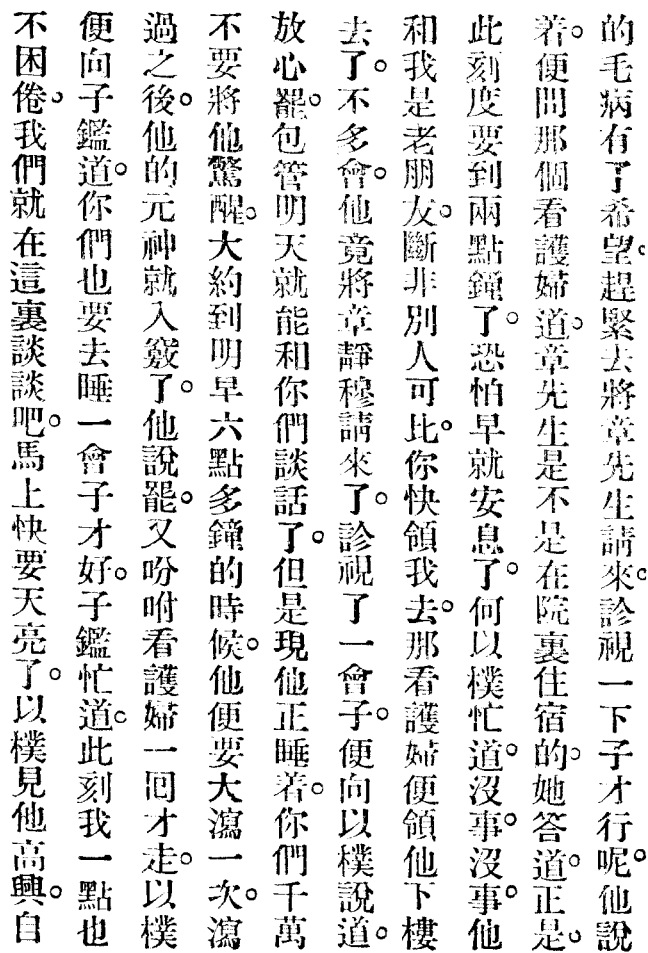 的毛病有了希望。趕緊去將章先生請來。診視一下子才行呢。他說
着。便問那個看護婦道。章先生是不是在院裏住宿的。她答道。正是。
此刻度要到兩點鐘了。恐怕早就安息了。何以樸忙道。沒事。沒事。他
和我是老朋友。斷非別人可比。你快領我去。那看護婦便領他下樓
去了。不多會。他竟將章靜穆請來了。診視了一會子。便向以樸說道。
放心罷。包管明天就能和你們談話了。但是現他正睡着。你們千萬
不要將他驚醒。大約到明早六點多鐘的時候。他便要大瀉一次。瀉
過之後。他的元神就入竅了。他說罷。又吩咐看護婦一回才走。以樸
便向子鑑道。你們也要去睡一會子才好。子鑑忙道。此刻我一點也
不困倦。我們就在這裏談談吧。馬上快要天亮了。以樸見他高興。自